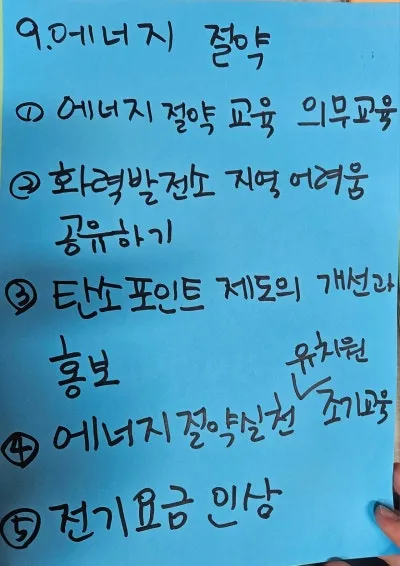 9. 에너지 절약
① 에너지 절약 교육 의무교육
② 화력발전소 지역 어려움
공유하기
③ 탄소포인트 제도의 개선과
홍보
유치원
④ 에너지절약실천 ✓ 조기교육
⑤ 전기요금 인상